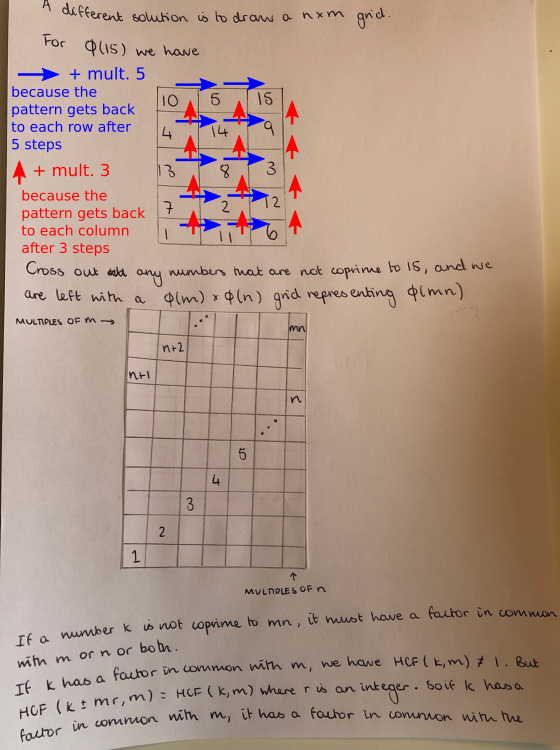 A different solution is to draw a n×m grid.
For Φ(15) we have
→ + mult. 5
because the
pattern gets back
to each row after
5 steps
↑ + mult. 3
because the
pattern gets back
to each column
after 3 steps
10 5 15
4 14 9
13 8 3
7 2 12
1 11 6
Cross out any numbers that are not coprime to 15, and we
are left with a Φ(m) × Φ(n) grid representing Φ(mn)
MULTIPLES OF m →
⋰ mn
n+2
n+1
n
⋰
5
4
3
2
1
↑
MULTIPLES OF n
If a number k is not coprime to mn, it must have a factor in common
with m or n or both.
If k has a factor in common with m, we have HCF(k,m) ≠ 1. But
HCF(k ± mr, m) = HCF(k,m) where r is an integer. So if k has a
factor in common with m, it has a factor in common with the